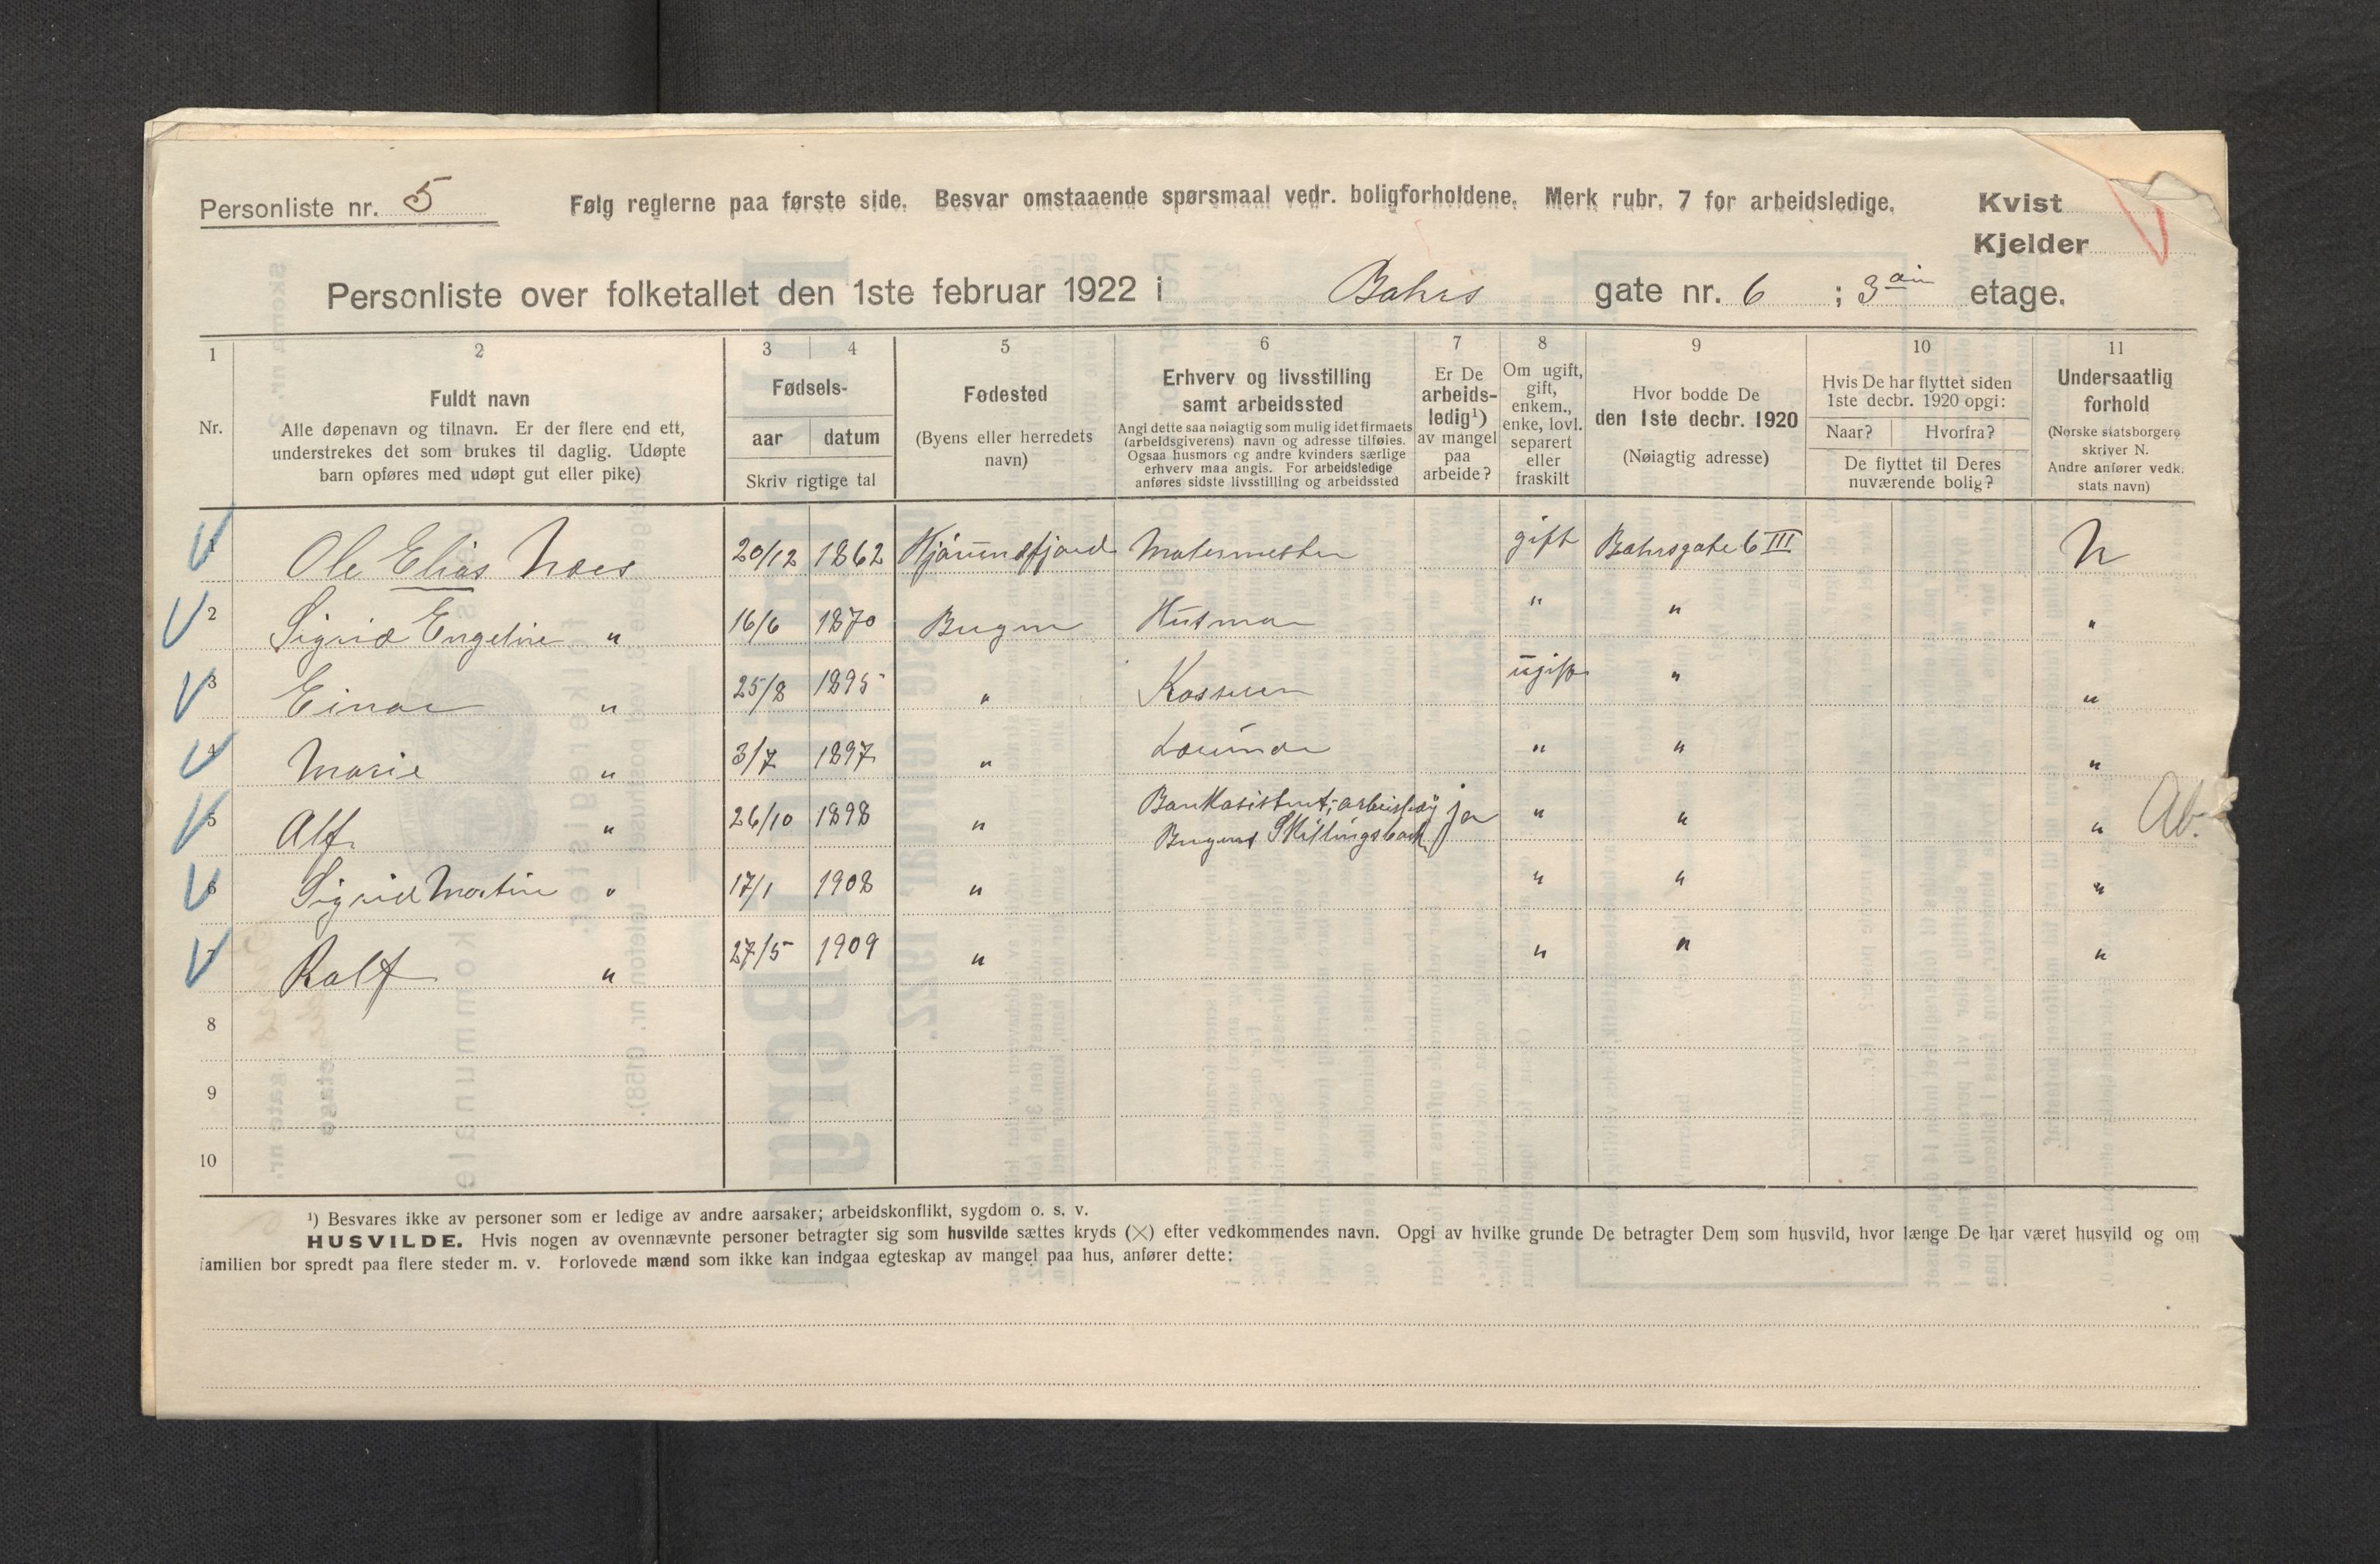 Personliste nr. 5
Følg reglerne paa første side. Besvar omstaaende spørsmaal vedr. boligforholdene. Merk rubr. 7 for arbeidsledige.
Kvist
Kjelder
Personliste over folketallet den 1ste februar 1922 i Bahrs gate nr. 6 ; 3 etage.
1 2 3 4 5 6 7 8 9 10 11
Nr.
Fuldt navn
Alle døpenavn og tilnavn. Er der flere end ett,
understrekes det som brukes til daglig. Udøpte
barn opføres med udøpt gut eller pike)
Fødsels-
aar datum
Skriv rigtige tal
Fødested
(Byens eller herredets
navn)
Erhverv og livsstilling
samt arbeidssted
Angi dette saa nøiagtig som mulig idet firmaets
(arbeidsgiverens) navn og adresse tilføies.
Ogsaa husmors og andre kvinders særlige
erhverv maa angis. For arbeidsledige
anføres sidste livsstilling og arbeidssted
Er De
arbeids-
ledig¹)
av mangel
paa
arbeide?
Om ugift,
gift,
enkem.,
enke, lovl.
separert
eller
fraskilt
Hvor bodde De
den 1ste decbr. 1920
(Nøiagtig adresse)
Hvis De har flyttet siden
1ste decbr. 1920 opgi:
Naar? Hvorfra?
De flyttet til Deres
nuværende bolig?
Undersaatlig
forhold
(Norske statsborgere
skriver N.
Andre anfører vedk.
stats navn)
1 Ole Elias Næs 20/12 1862 Hjørundfjord Malermester gift Bahrsgate 6 III N
2 Sigrid Engeline " 16/6 1870 Bergen Husmor " " "
3 Einar " 25/8 1895 " Kasserer ugift " "
4 Marie " 3/7 1897 " Lærerinde " " "
5 Alf " 26/10 1898 " Bankasistent; arbeisledig ja " " " Ab.
Bergens Skillingsbank
6 Sigrid Martine " 17/1 1908 " " " "
7 Ralf " 27/5 1909 " " " "
8
9
10
¹) Besvares ikke av personer som er ledige av andre aarsaker; arbeidskonflikt, sygdom o. s. v.
HUSVILDE. Hvis nogen av ovennævnte personer betragter sig som husvilde sættes kryds (×) efter vedkommendes navn. Opgi av hvilke grunde De betragter Dem som husvild, hvor længe De har været husvild og om
familien bor spredt paa flere steder m. v. Forlovede mænd som ikke kan indgaa egteskap av mangel paa hus, anfører dette: